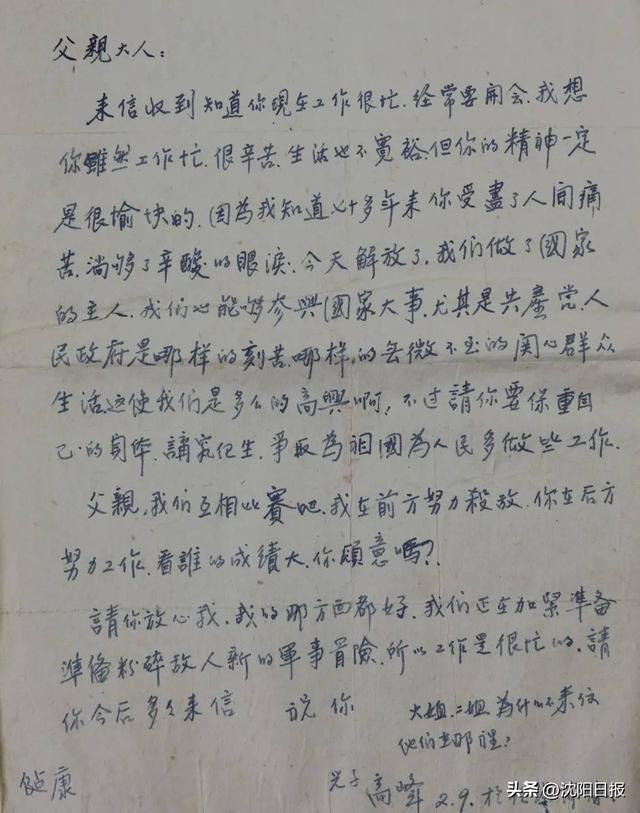 父親大人：
来信收到知道你現在工作很忙.经常要開会.我想
你雖然工作忙.很辛苦.生活也不寬裕.但你的精神一定
是很愉快的.因為我知道几十多年来你受盡了人间痛
苦.淌够了辛酸的眼淚.今天解放了.我们做了國家
的主人.我们也能够参與國家大事.尤其是共產党.人
民政府是那样的刻苦.那样的无微不至的関心群众
生活这使我们是多么的高興啊,不过請你要保重自
己的身体.講究卫生.爭取為祖國為人民多做些工作.
父親,我们互相比賽吧.我在前方努力殺敌.你在后方
努力工作.看誰的成績大.你願意嗎?
請你放心我,我的那方面都好.我们正在加緊準备
準备粉碎敌人新的軍事冒險.所以工作是很忙的.請
你今后多多来信 祝你
大姐.二姐為什么不来信
他们在那裡?
健康
兒子
高峰 2.9.於
头条 @沈阳日报